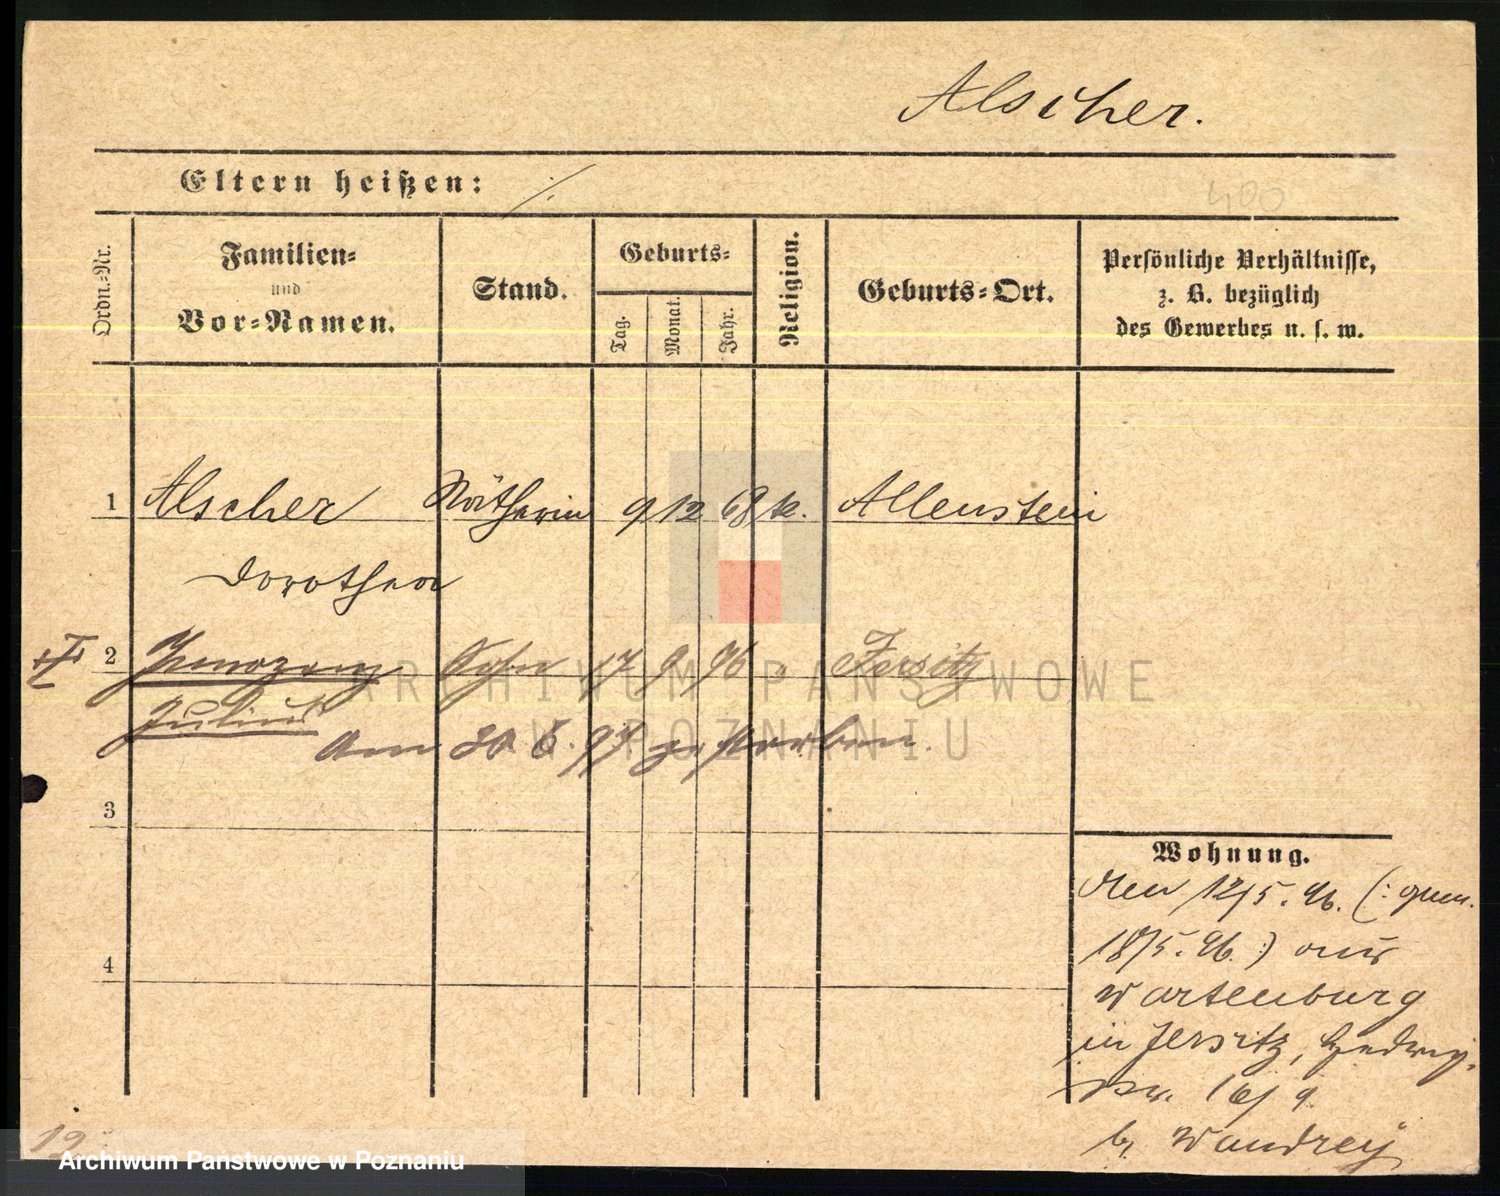 Alscher.
Eltern heißen: ./.
400
Ordn.-Nr.
Familien-
und
Vor-Namen.
Stand.
Geburts-
Tag.
Monat.
Jahr.
Religion.
Geburts-Ort.
Persönliche Verhältnisse,
z. B. bezüglich
des Gewerbes u. s. w.
1 Alscher Nätherin 9 12 68 k. Allenstein
Dorothea
2 Sohn 17 9 96 " Jersitz
Julius
Am 30 6. 97 gestorben.
3
Wohnung.
den 12/5. 96. (: gem.
18/5. 96. :) aus
4
Wartenburg
in Jersitz, Hedwig-
str. 16/9
b. Wandrey
19
ARCHIWUM PAŃSTWOWE
W POZNANIU
Archiwum Państwowe w Poznaniu